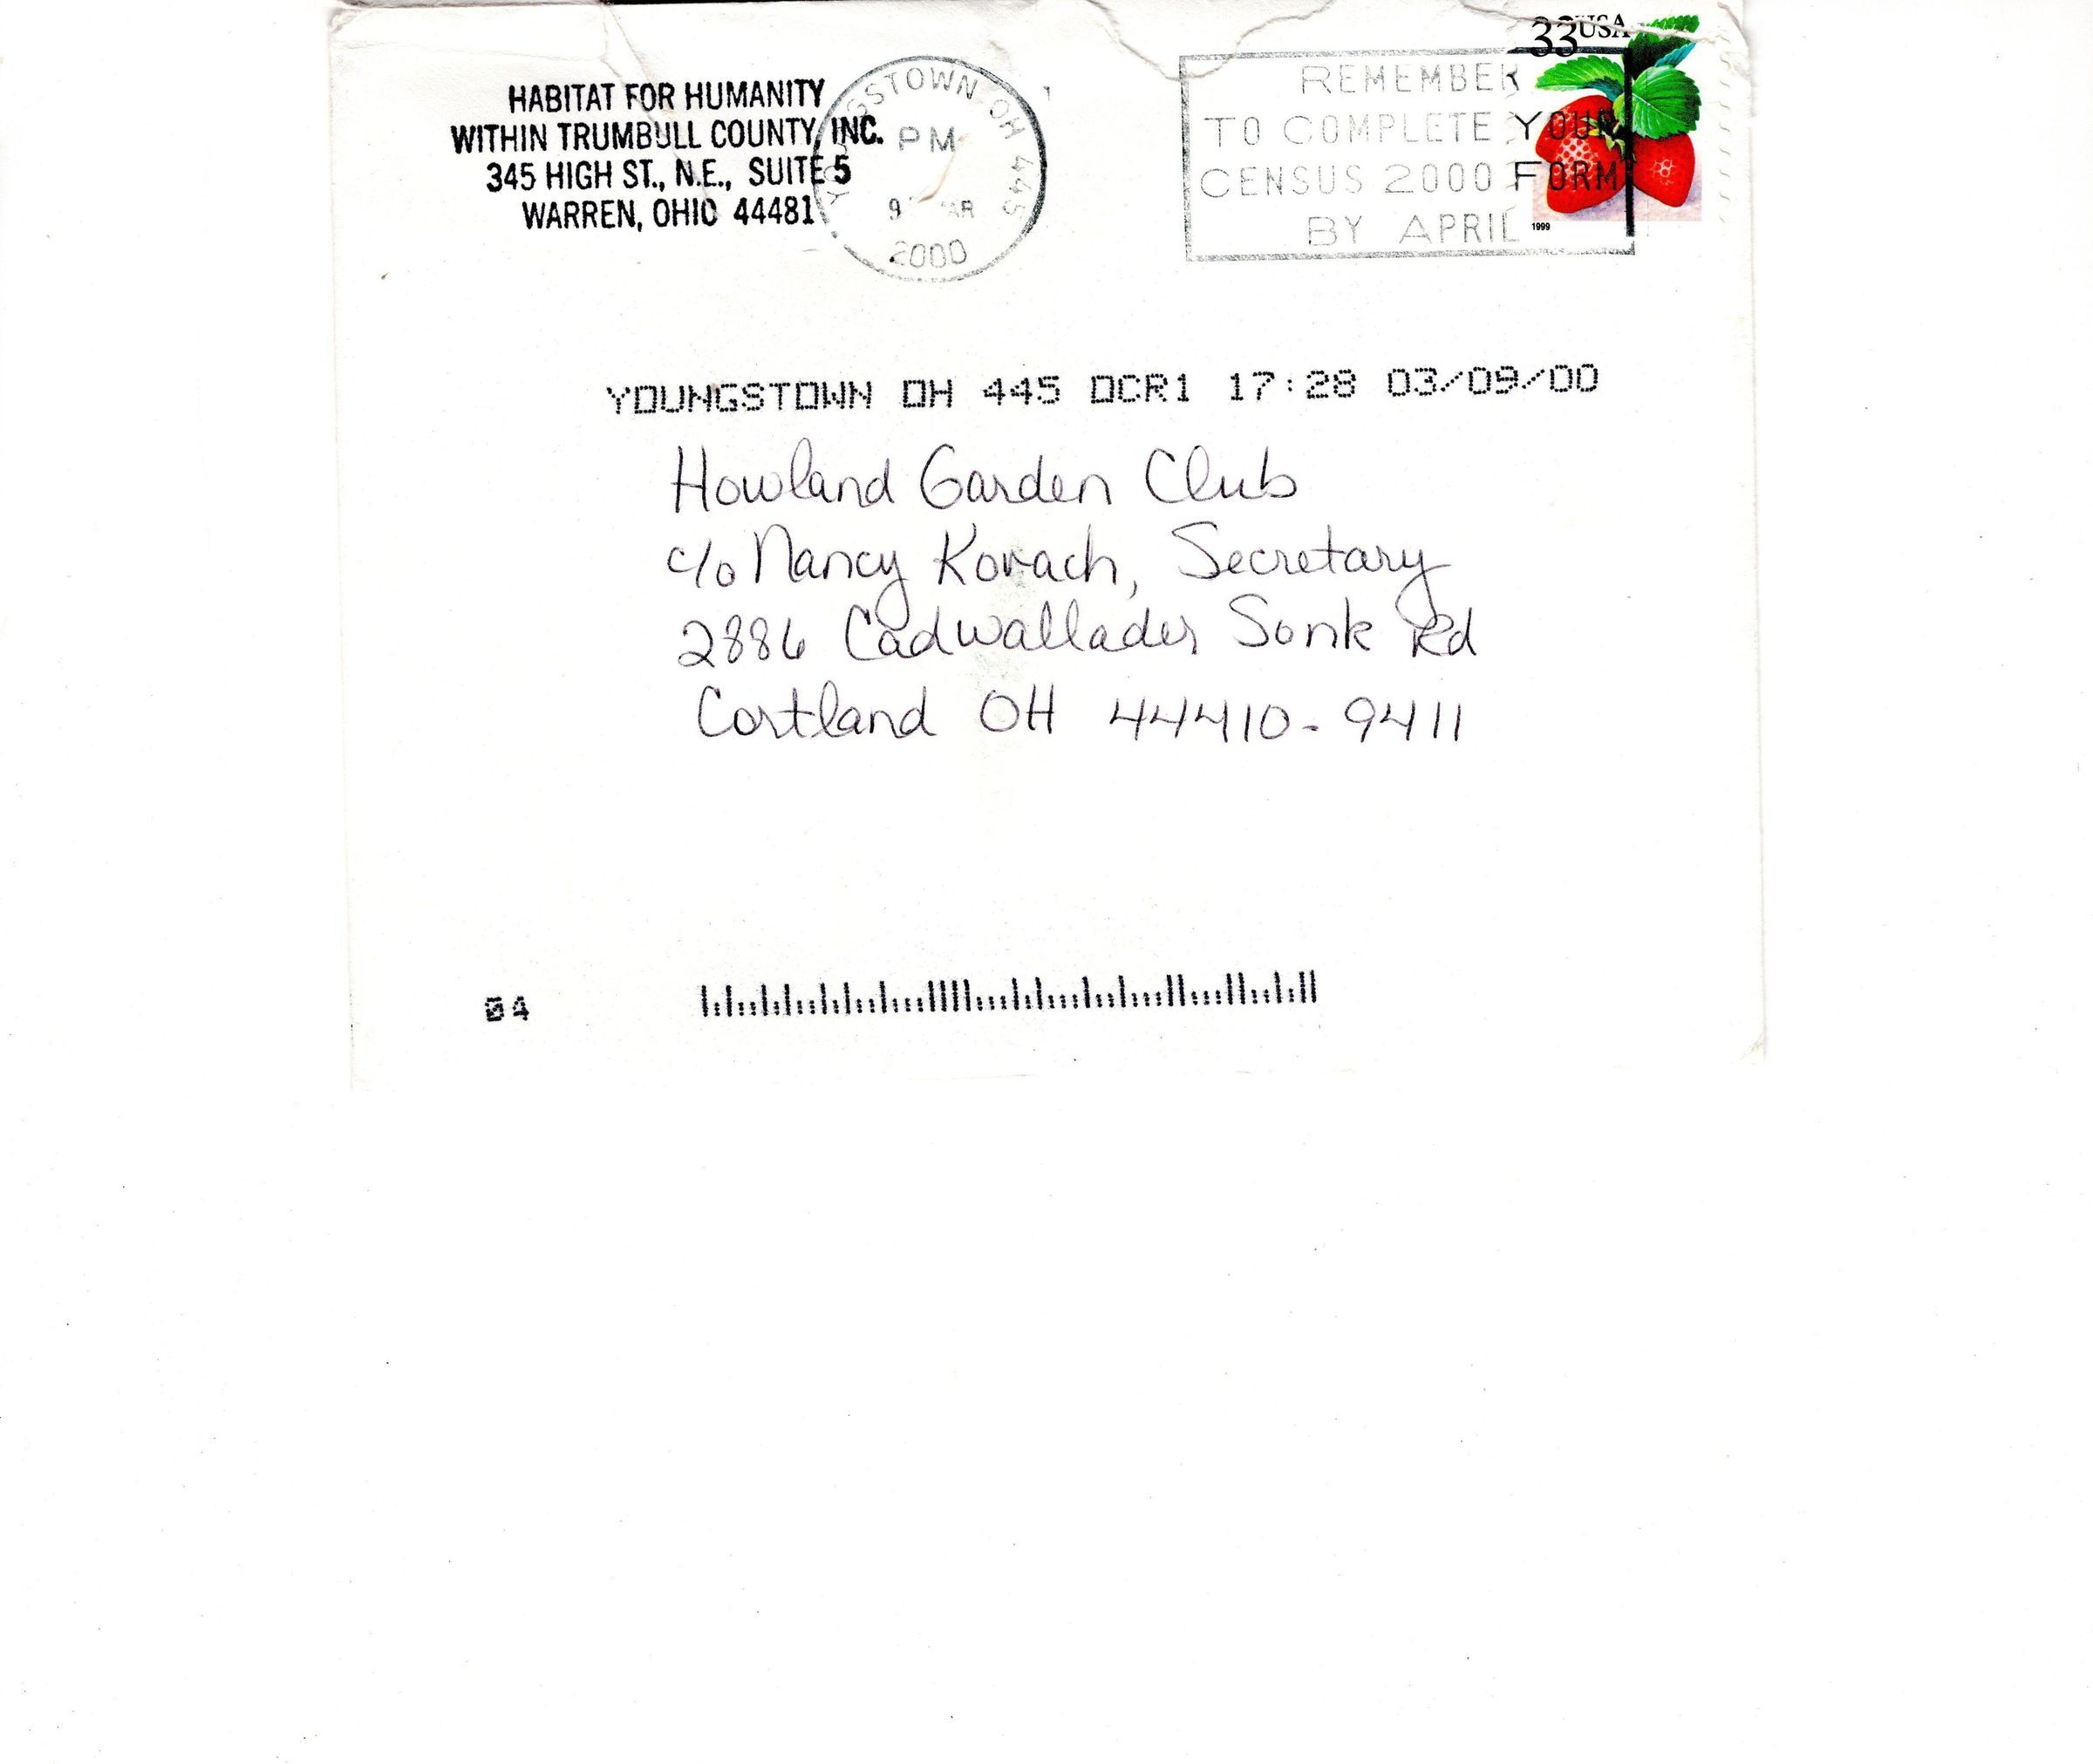 HABITAT FOR HUMANITY
WITHIN TRUMBULL COUNTY, INC.
345 HIGH ST., N.E., SUITE 5
WARREN, OHIO 44481
OH 445
PM
2000
REMEMBER
TO COMPLETE YOUR
CENSUS 2000 FORM
BY APRIL
33 USA
1999
YOUNGSTOWN OH 445 OCR1 17:28 03/09/00
Howland Garden Club
c/o Nancy Kovach, Secretary
2886 Cadwallader Sonk Rd
Cortland OH 44410-9411
04